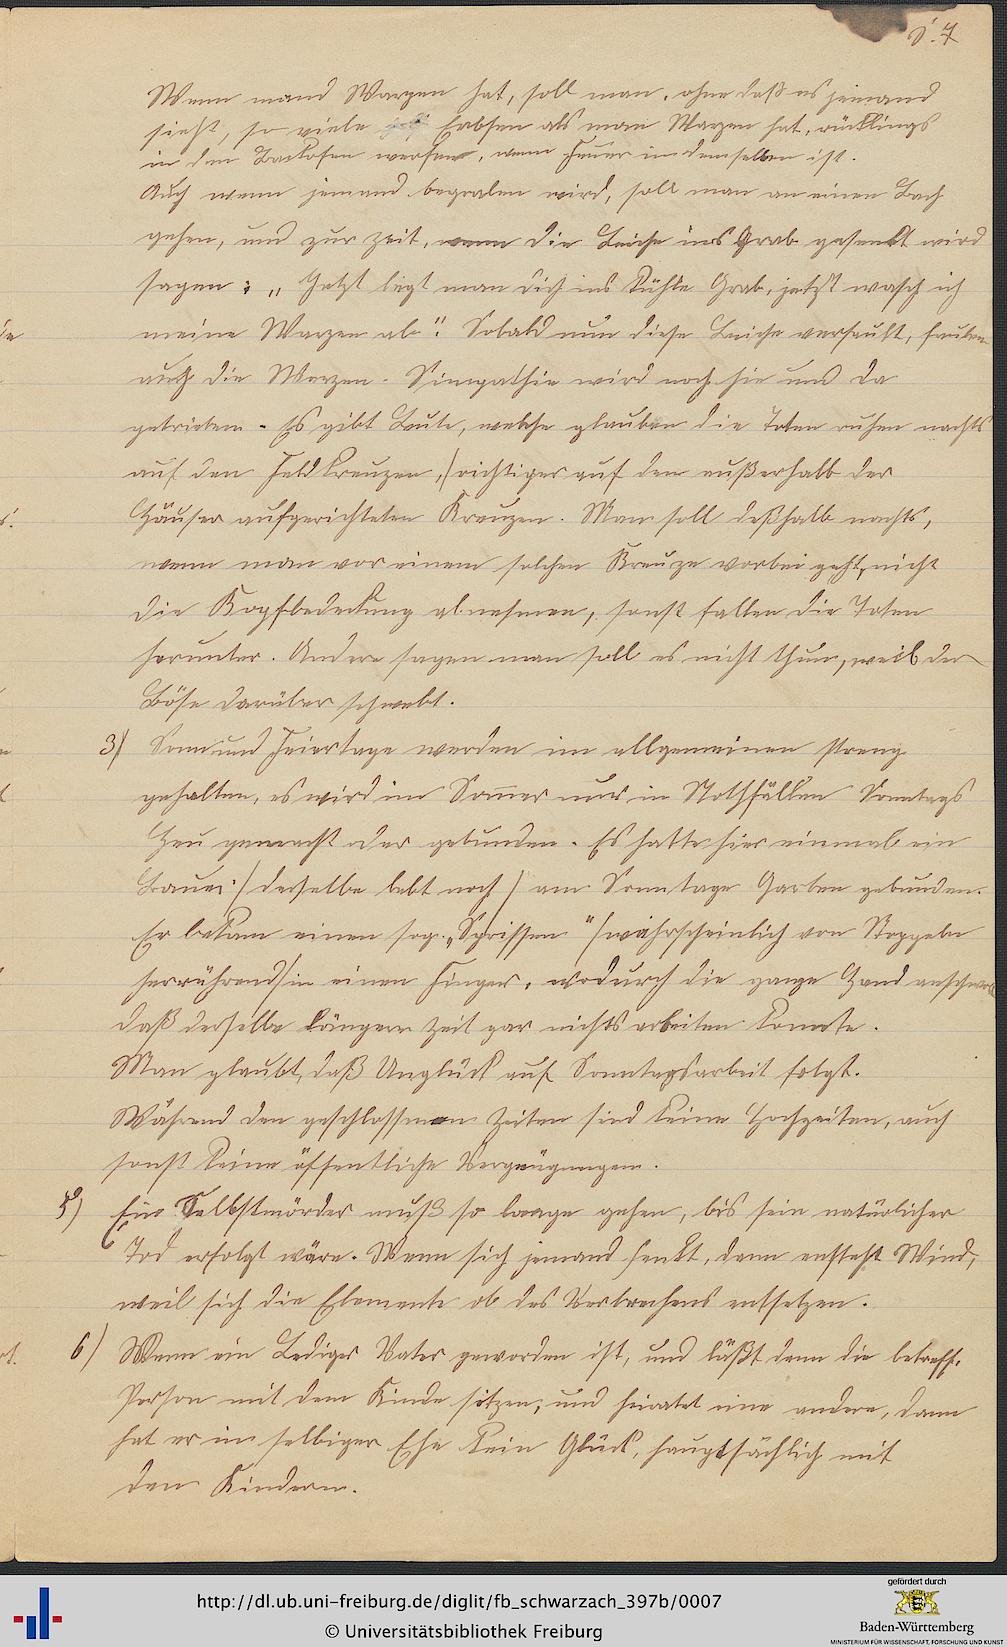 S. 7
Wenn mand Warzen hat, soll man, ohne daß es jemand
sieht, so viele Erbsen als man Warzen hat, rücklings
in den Backofen werfen, wenn Feuer in demselben ist.
Auch wenn jemand begraben wird, soll man an einen Bach
gehen, und zur Zeit, wenn die Leiche ins Grab gesenkt wird
sagen: „Jetzt legt man dich ins kühle Grab, jetzt wasch ich
meine Warzen ab“. Sobald nun diese Leiche verfault, faulen
auch die Warzen. Simpathie wird noch hie und da
getrieben. Es gibt Leute, welche glauben die Toten ruhen nachts
auf den Feldkreuzen, / richtiger auf den außerhalb der
Häuser aufgerichteten Kreuzen. Man soll deßhalb nachts,
wenn man vor einem solchen Kreuze vorbei geht, nicht
die Kopfbedeckung abnehmen, sonst fallen die Toten
herunter. Andere sagen man soll es nicht thun, weil der
Böse darüber schwebt.
3) Sonn und Feiertage werden im allgemeinen streng
gehalten, es wird im Sommer nur in Nothfällen Sonntags
Heu gemacht oder gebunden. Es hatte hier einmal ein
Bauer / derselbe lebt noch / am Sonntage Garben gebunden.
Er bekam einen sog. „Sprissen“ / wahrscheinlich von Stoppeln
herrührend / in einen Finger, wodurch die ganze Hand anschwoll
daß derselbe längere Zeit gar nichts arbeiten konnte.
Man glaubt, daß Unglück auf Sonntagsarbeit folgt.
Während den geschlossenen Zeiten sind keine Hochzeiten, auch
sonst keine öffentliche Vergnügungen.
5) Ein Selbstmörder muß so lange gehen, bis sein natürlicher
Tod erfolgt wäre. Wenn sich jemand henkt, dann entsteht Wind,
weil sich die Elemente ob des Verbrechens entsetzen.
6) Wenn ein Lediger Vater geworden ist, und läßt dann die betreff.
Person mit dem Kinde sitzen, und heiratet eine andere, dann
hat er in selbiger Ehe kein Glück, hauptsächlich mit
den Kindern.
http://dl.ub.uni-freiburg.de/diglit/fb_schwarzach_397b/0007
© Universitätsbibliothek Freiburg
gefördert durch
Baden-Württemberg
MINISTERIUM FÜR WISSENSCHAFT, FORSCHUNG UND KUNST